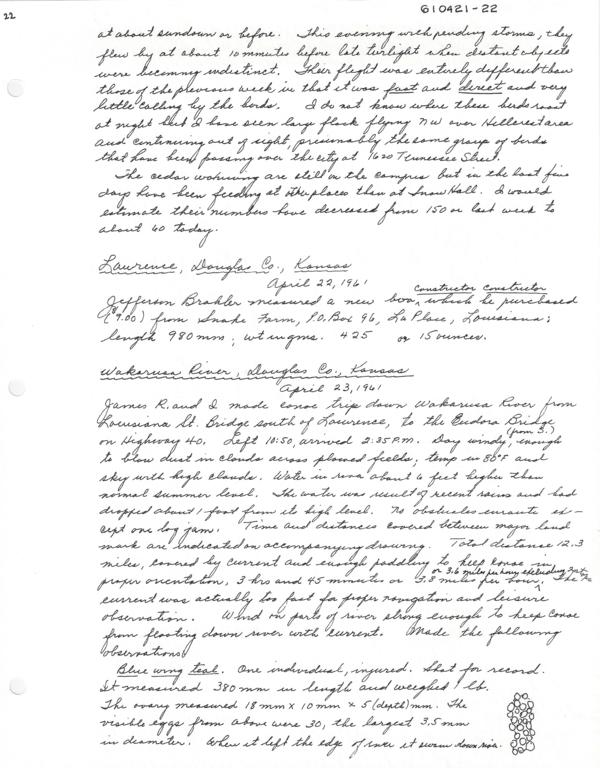 22
610421-22
at about sundown or before. This evening with pending storms, they
flew by at about 10 minutes before late twilight when distant objects
were becoming indistinct. Their flight was entirely different than
those of the previous week in that it was fast and direct and very
little calling by the birds. I do not know where these birds roost
at night but I have seen large flock flying NW over Hillcrest area
and continuing out of sight, presumably the same group of birds
that have been passing over the city at 1620 Tennessee Street.
The cedar waxwing are still on the campus but in the last five
days have been feeding at other places than at Snow Hall. I would
estimate their numbers have decreased from 150 on last week to
about 60 today.
Lawrence, Douglas Co., Kansas
April 22, 1961
constrictor constrictor
Jefferson Brakler measured a new boa, which he purchased
($9.00) from Snake Farm, P.O. Box 96, La Place, Louisiana;
length 980 mm; wt in gms. 425 or 15 ounces.
Wakarusa River, Douglas Co., Kansas
April 23, 1961
James R. and I made canoe trip down Wakarusa River from
Louisiana St. Bridge south of Lawrence, to the Eudora Bridge
on Highway 40. Left 10:50, arrived 2:35 P.M. Day windy, (from S.) enough
to blow dust in clouds across plowed fields; temp in 80°F and
sky with high clouds. Water in river about 6 feet higher than
normal summer level. The water was result of recent rains and had
dropped about 1 foot from its high level. No obstacles enroute ex-
cept one log jam. Time and distances covered between major land
mark are indicated on accompanying drawing. Total distance 12.3
miles, covered by current and enough paddling to keep canoe in
or 3.6 miles per hour excluding
proper orientation, 3 hrs and 45 minutes or 3.3 miles per hour. The
current was actually too fast for proper navigation and leisure
observation. Wind on parts of river strong enough to keep canoe
from floating down river with current. Made the following
observations:
Blue wing teal. One individual, injured. Shot for record.
It measured 380 mm in length and weighed 1 lb.
The ovary measured 18 mm x 10 mm x 5 (depth) mm. The
visible eggs from above were 30, the largest 3.5 mm
in diameter. When it left the edge of river it swam down river.